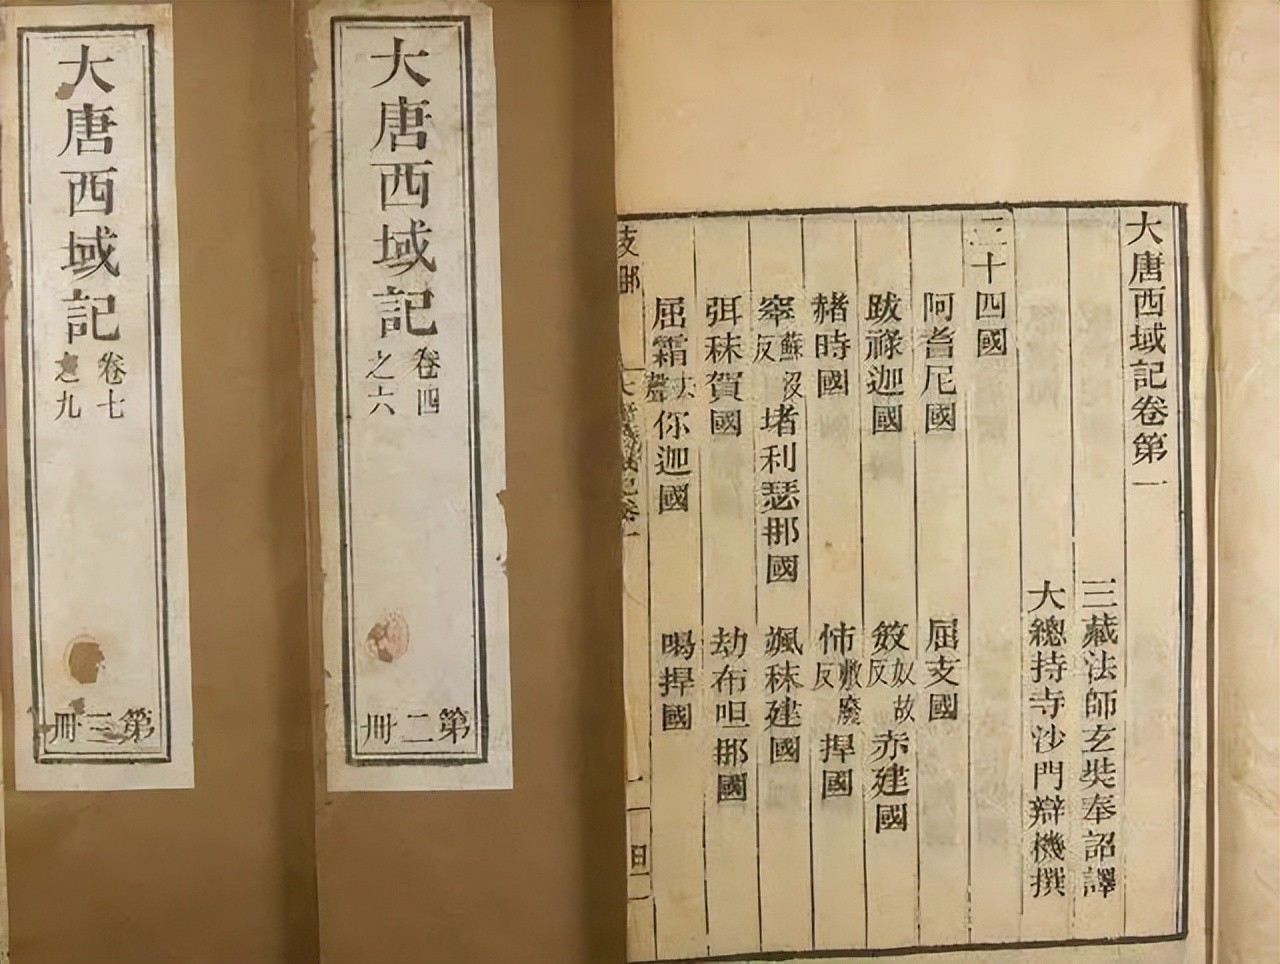 大唐西域記
卷七
之九
第三冊
大唐西域記
卷四
之六
第二冊
大唐西域記卷第一
三藏法師玄奘奉詔譯
大總持寺沙門辯機撰
三十四國
阿耆尼國 屈支國
跋祿迦國 笯奴故反赤建國
赭時國 㤄敷廢反捍國
窣蘇沒反堵利瑟那國 颯秣建國
弭秣賀國 劫布呾那國
屈霜去聲你迦國 喝捍國
支那